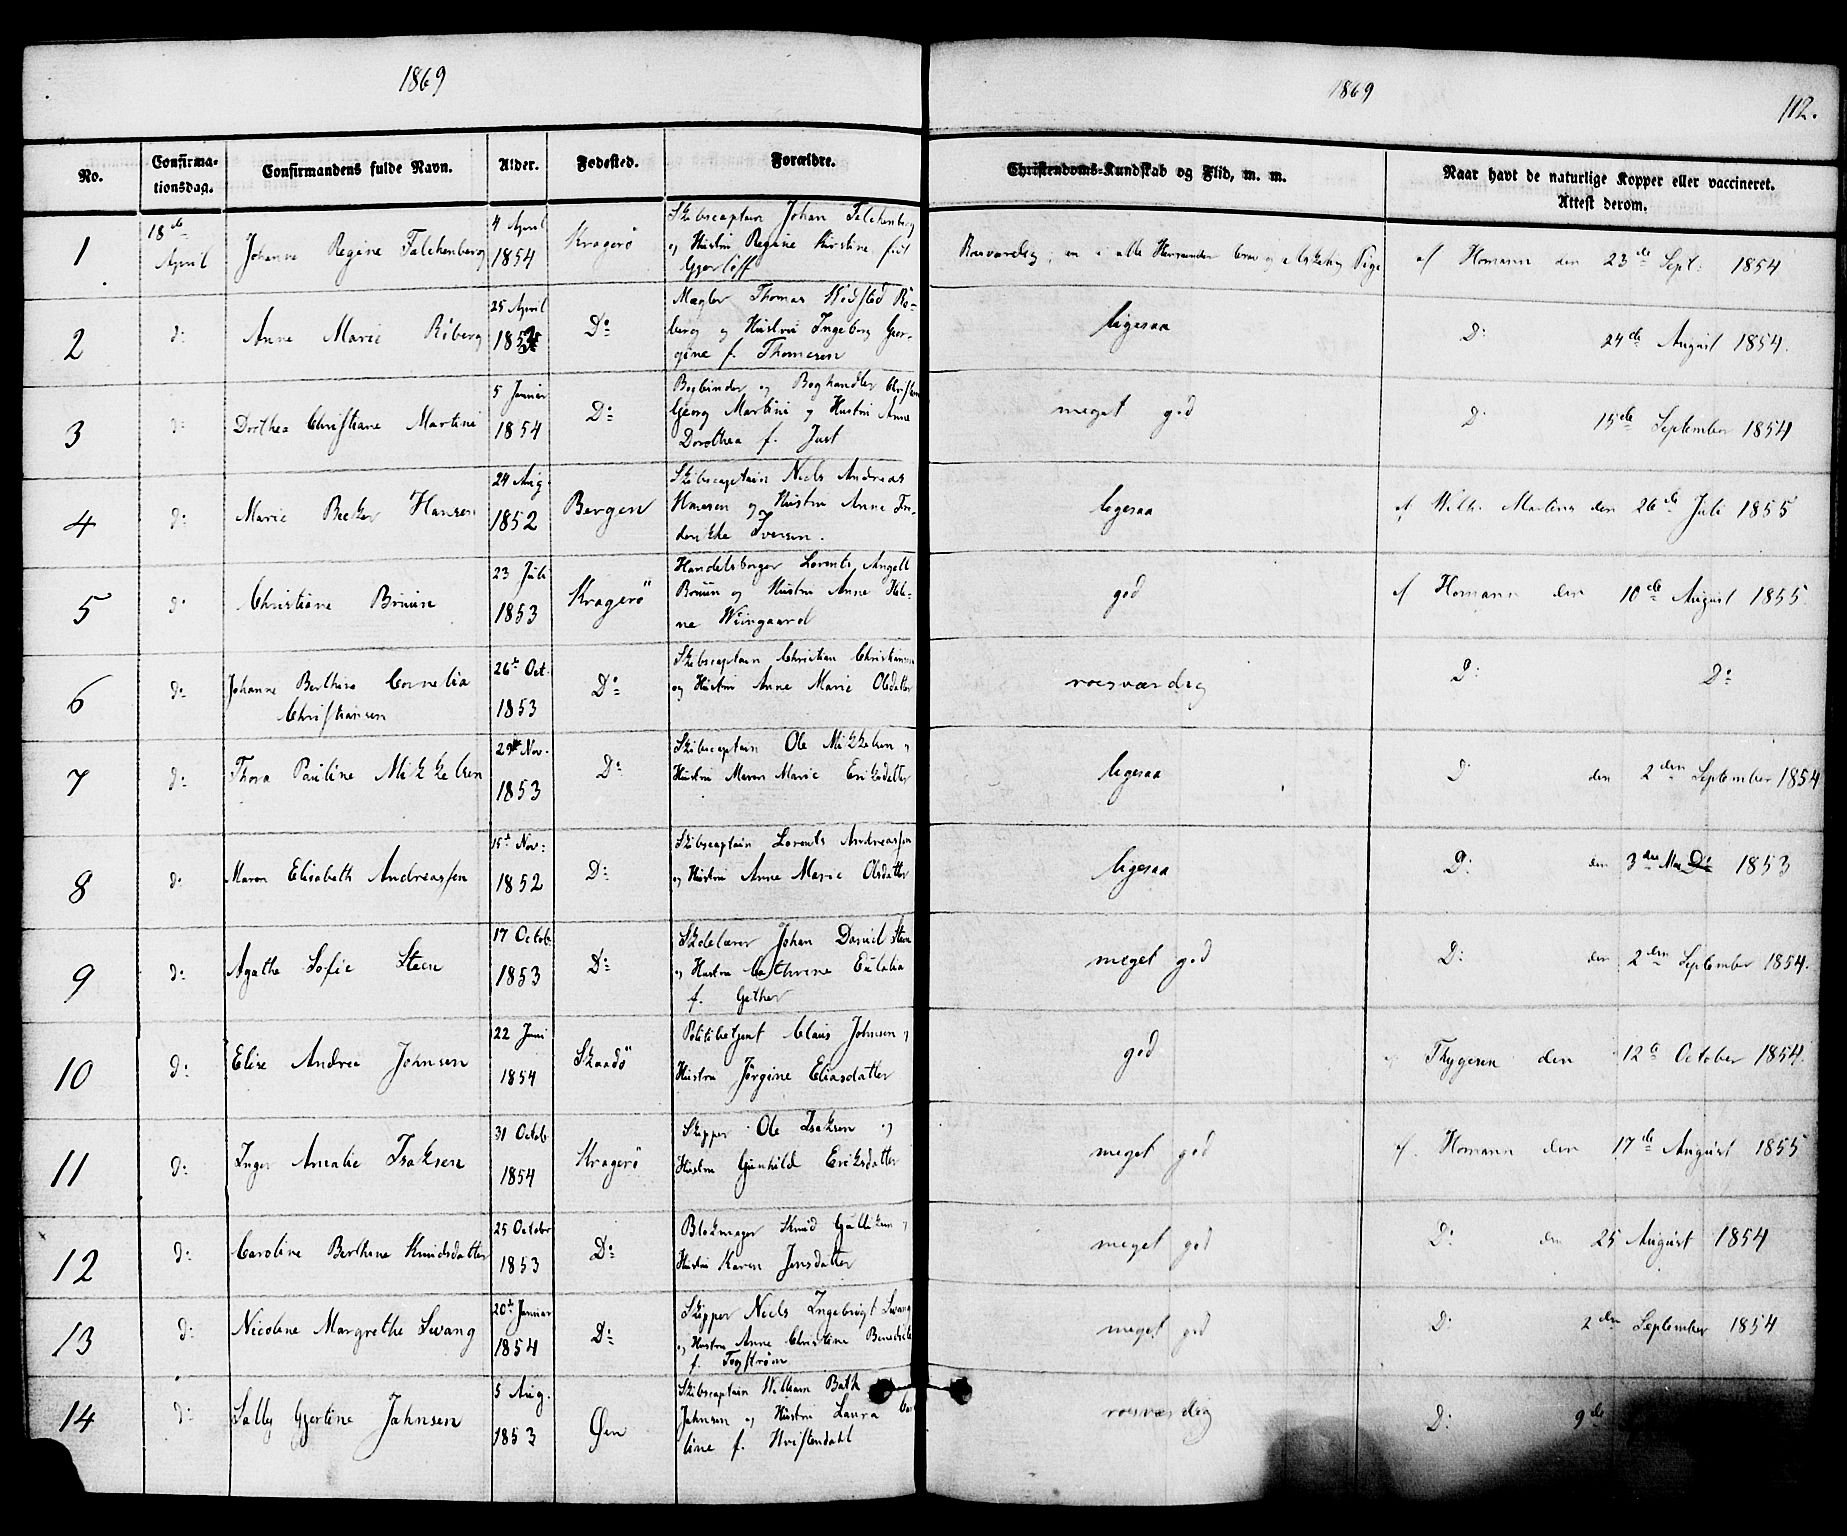 1869
1869
112.
No.
Confirma-
tionsdag.
Confirmandens fulde Navn.
Alder.
Fødested.
Forældre.
Christendoms-Kundskab og Flid, m. m.
Naar havt de naturlige Kopper eller vaccineret.
Attest derom.
1
18de
April
Johanne Regine Falckenberg
4 April
1854
Kragerø
Skibscaptein Johan Falckenberg
og Hustru Regine Kirstine fød
Gjerløff
Roesværdig; en i alle Henseender brav og elskelig Pige
af Homann den 23de Sept: 1854
2
do
Anne Marie Riberg
25 April
185
Do
Mægler Thomas Wedsted Ri-
berg og Hustru Ingeborg Geor-
gine f. Thomesen
ligesaa
D: 24de August 1854.
3
do
Dorthea Christiane Martini
5 Januar
1854
Do
Bogbinder og Boghandler Christian
Georg Martini og Hustru Anne
Dorothea f. Just
meget god
D: 15de September 1854
4
do
Marie Becker Hansen
24 Aug.
1852
Bergen
Skibscaptein Niels Andreas
Hansen og Hustru Anne Fre-
derikke Iversen.
ligesaa
af Wilh. Martini den 26de Juli 1855
5
do
Christiane Bruun
23 Juli
1853
Kragerö
Handelsborger Lorents Angell
Bruun og Hustru Anne Hele-
ne Wiingaard
god
af Homann den 10de August 1855
6
do
Johanne Berthine Cornelia
Christiansen
26de Oct.
1853
Do
Skibscaptain Christian Christiansen
og Hustru Anne Marie Olsdatter
roesværdig
D: D:
7
do
Thora Pauline Mikkelsen
29 Nov.
1853
Do
Skibscaptein Ole Mikkelsen og
Hustru Maren Marie Eriksdatter
ligesaa
D: den 2den September 1854
8
do
Maren Elisabeth Andreassen
15de Nov:
1852
Do
Skibscaptein Lorents Andreassen
og Hustru Anne Marie Olsdatter
ligesaa
D: den 3die 1853
9
do
Agathe Sofie Steen
17 Octob.
1853
Do
Skolelærer Johan Daniel Steen
og Hustru Cathrine Eulalia
f. Gether
meget god
D: den 2den September 1854.
10
do
Elise Andrea Johnsen
22 Juni
1854
Skaadö
Politibetjent Claus Johnsen og
Hustru Jörgine Eliasdatter
god
af Thygesen den 12te October 1854.
11
do
Inger Amalie Isaksen
31 Octob
1854
Kragerö
Skipper Ole Isaksen og
Hustru Gunhild Eriksdatter
meget god
af. Homann den 17de August 1855
12
do
Caroline Berthine Knudsdatter
25 October
1853
Do
Blokmager Knud Gulliksen og
Hustru Karen Jensdatter
meget god
D: den 25 August 1854
13
do
Nicoline Margrethe Swang
20de Januar
1854
Do
Skipper Niels Ingebrigt Swang
og Hustru Anne Christine Benedicte
f. Fogström
meget god
D: 2den September 1854
14
do
Sally Gjertine Jahnsen
5 Aug.
1853
Øen
Skibscaptein William Bath
Jahnsen og Hustru Laura Caro
line f. Hvistendahl
roesværdig
D: 9de